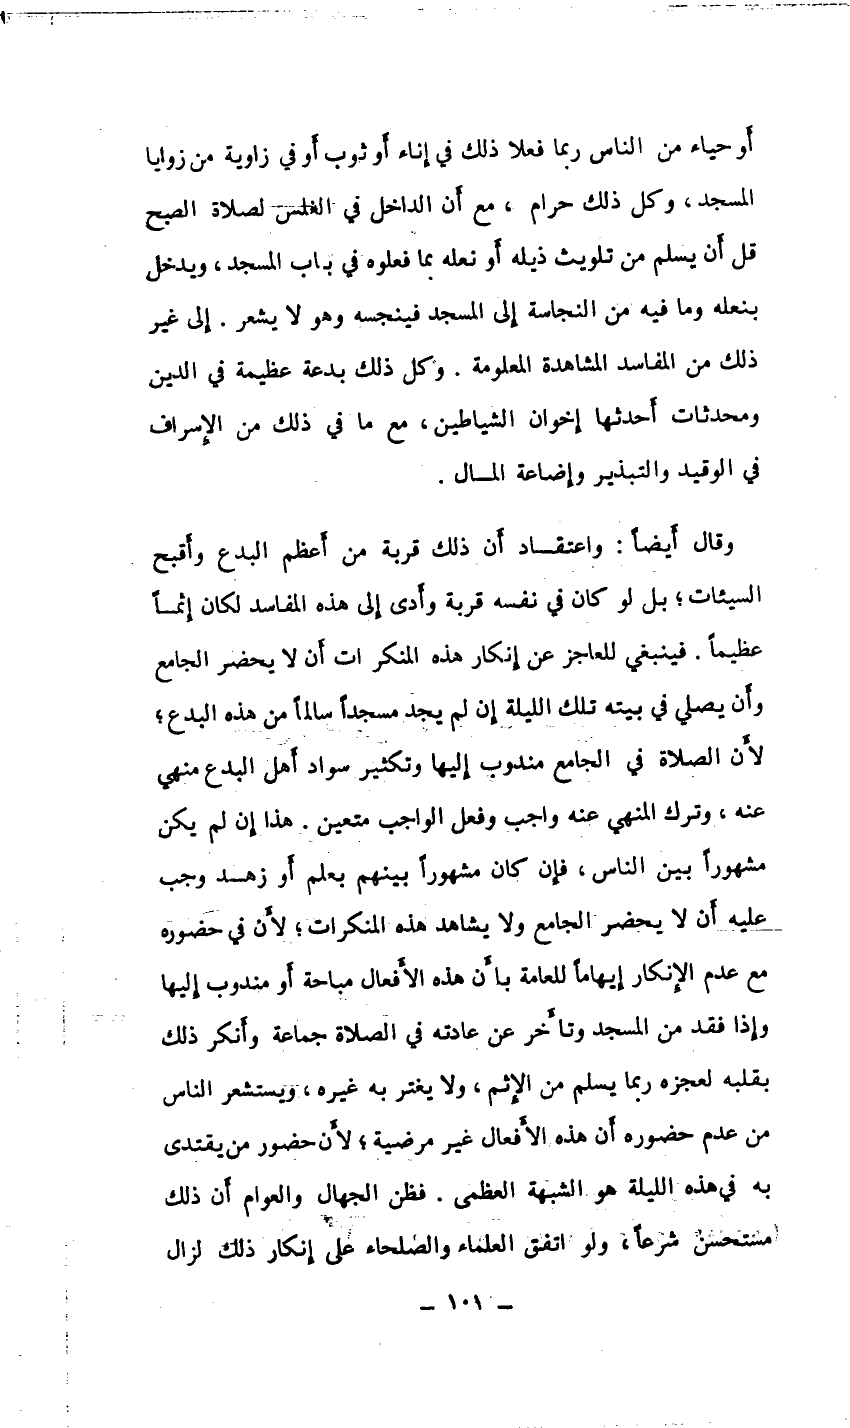 أو حياء من الناس ربما فعلا ذلك في إناء أو ثوب أو في زاوية من زوايا
المسجد ، وكل ذلك حرام ، مع أن الداخل في الغلس لصلاة الصبح
قل أن يسلم من تلويث ذيله أو نعله بما فعلوه في باب المسجد ، ويدخل
بنعله وما فيه من النجاسة إلى المسجد فينجسه وهو لا يشعر . إلى غير
ذلك من المفاسد المشاهدة المعلومة . وكل ذلك بدعة عظيمة في الدين
ومحدثات أحدثها إخوان الشياطين ، مع ما في ذلك من الإسراف
في الوقيد والتبذير وإضاعة المـال .
وقال أيضاً : واعتقـاد أن ذلك قربة من أعظم البدع وأقبح
السيئات ؛ بل لو كان في نفسه قربة وأدى إلى هذه المفاسد لكان إثمـاً
عظيماً . فينبغي للعاجز عن إنكار هذه المنكر ات أن لا يحضر الجامع
وأن يصلي في بيته تلك الليلة إن لم يجد مسجداً سالماً من هذه البدع ؛
لأن الصلاة في الجامع مندوب إليها وتكثير سواد أهل البدع منهي
عنه ، وترك المنهي عنه واجب وفعل الواجب متعين . هذا إن لم يكن
مشهوراً بين الناس ، فإن كان مشهوراً بينهم بعلم أو زهـد وجب
عليه أن لا يحضر الجامع ولا يشاهد هذه المنكرات ؛ لأن في حضوره
مع عدم الإنكار إيهاماً للعامة بأن هذه الأفعال مباحة أو مندوب إليها
وإذا فقد من المسجد وتأخر عن عادته في الصلاة جماعة وأنكر ذلك
بقلبه لعجزه ربما يسلم من الإثم ، ولا يغتر به غيره ، ويستشعر الناس
من عدم حضوره أن هذه الأفعال غير مرضية ؛ لأن حضور من يقتدى
به في هذه الليلة هو الشبهة العظمى . فظن الجهال والعوام أن ذلك
مستحسن شرعاً ، ولو اتفق العلماء والصلحاء على إنكار ذلك لزال
– ١٠١ –